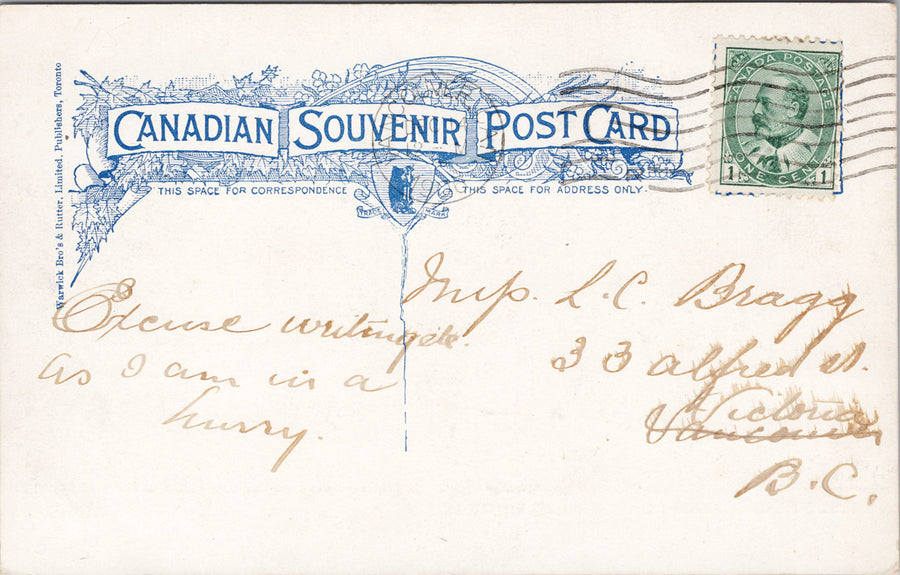 Warwick Bro's & Rutter, Limited. Publishers, Toronto
CANADIAN SOUVENIR POST CARD
THIS SPACE FOR CORRESPONDENCE
THIS SPACE FOR ADDRESS ONLY.
TRADE MARK
CANADA POSTAGE
1 ONE CENT 1
Excuse writing etc.
as I am in a
hurry.
Miss. L. C. Bragg
33 alfred st.
Victoria
Vancouver
B.C.